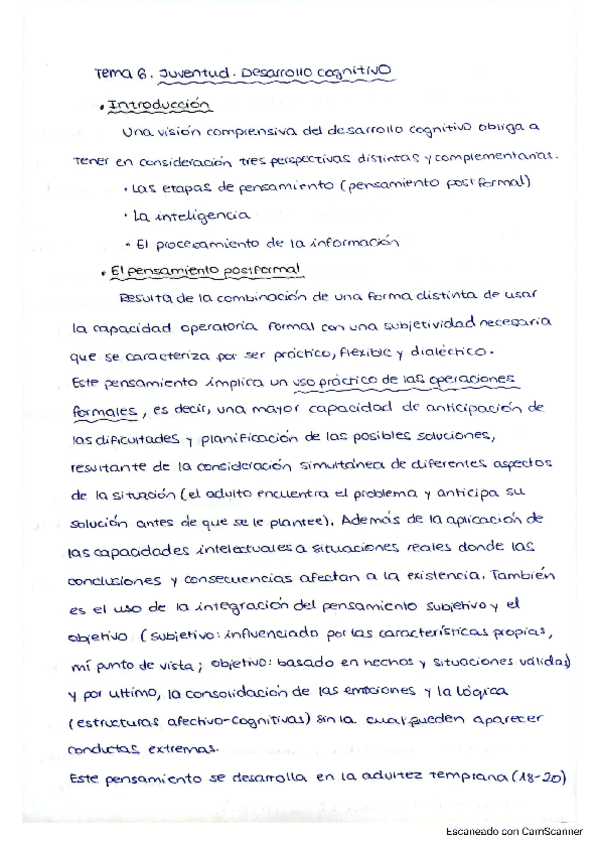 Tema 6. Juventud. Desarrollo cognitivo
• Introducción
Una visión comprensiva del desarrollo cognitivo obliga a
tener en consideración tres perspectivas distintas y complementarias.
· Las etapas de pensamiento (pensamiento postformal)
· La inteligencia
· El procesamiento de la información
• El pensamiento postformal
Resulta de la combinación de una forma distinta de usar
la capacidad operatoria formal con una subjetividad necesaria
que se caracteriza por ser práctico, flexible y dialéctico.
Este pensamiento implica un uso práctico de las operaciones
formales, es decir, una mayor capacidad de anticipación de
las dificultades y planificación de las posibles soluciones,
resultante de la consideración simultánea de diferentes aspectos
de la situación (el adulto encuentra el problema y anticipa su
solución antes de que se le plantee). Además de la aplicación de
las capacidades intelectuales a situaciones reales donde las
conclusiones y consecuencias afectan a la existencia. También
es el uso de la integración del pensamiento subjetivo y el
objetivo (subjetivo: influenciado por las características propias,
mi punto de vista; objetivo: basado en hechos y situaciones válidas)
y por ultimo, la consolidación de las emociones y la lógica
(estructuras afectivo-cognitivas) sin la cual pueden aparecer
conductas extremas.
Este pensamiento se desarrolla en la adultez temprana (18-20)
Escaneado con CamScanner